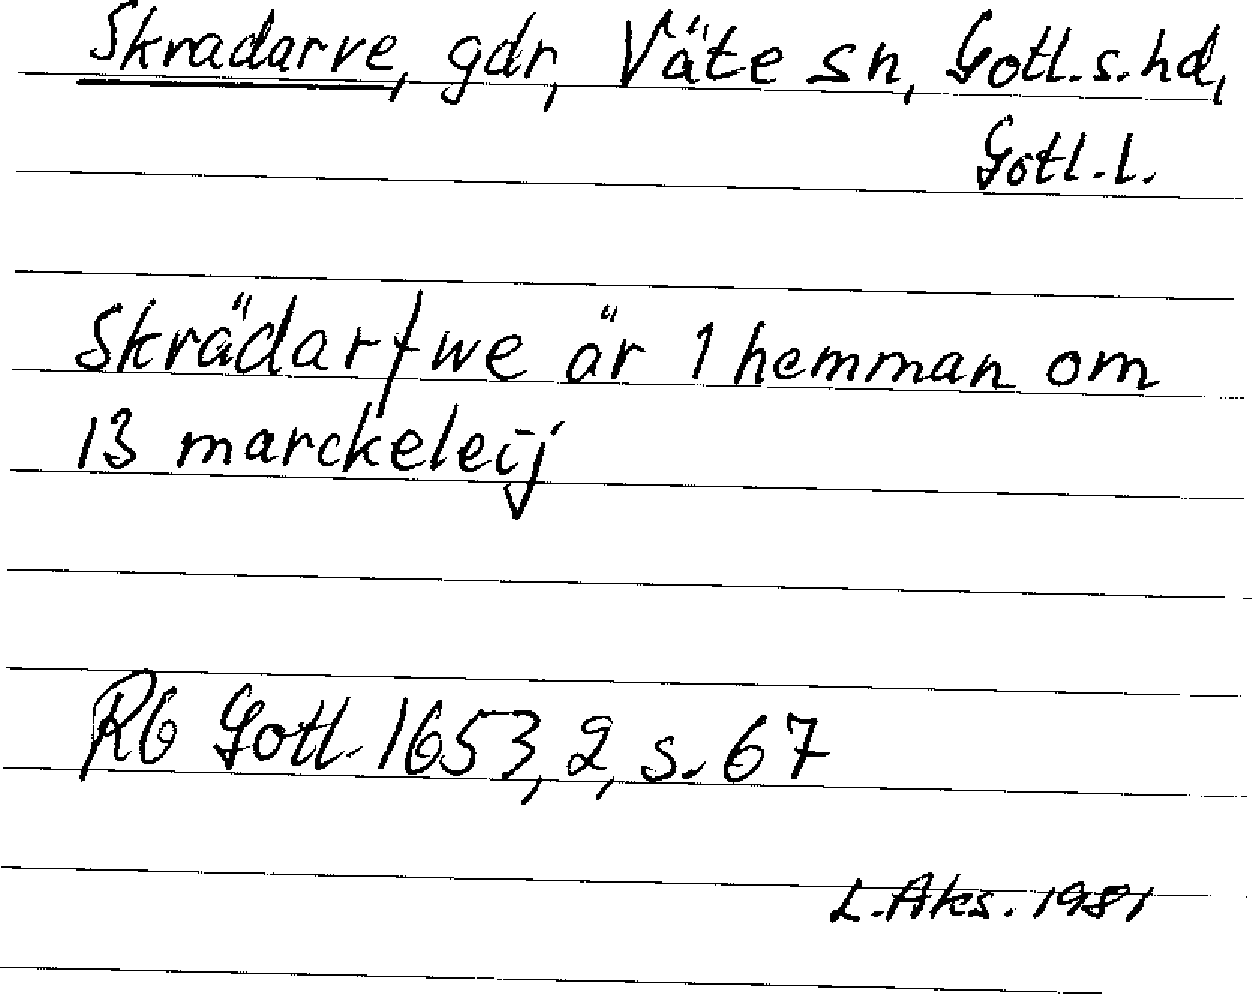 Skradarve, gdr, Väte sn, Gotl. s. hd,
Gotl. l.
Skrädarfwe är 1 hemman om
13 marckeleij
Rb Gotl. 1653, 2, s. 67
L. Aks. 1981